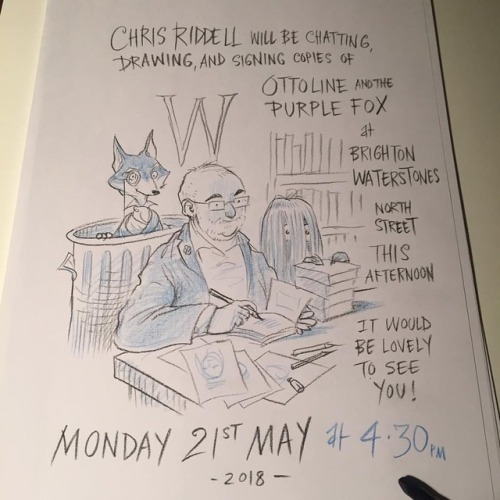 CHRIS RIDDELL WILL BE CHATTING,
DRAWING, AND SIGNING COPIES OF
OTTOLINE AND THE
PURPLE FOX
W
at
BRIGHTON
WATERSTONES
NORTH
STREET
THIS
AFTERNOON
IT WOULD
BE LOVELY
TO SEE
YOU!
MONDAY 21ST MAY at 4.30PM
- 2018 -